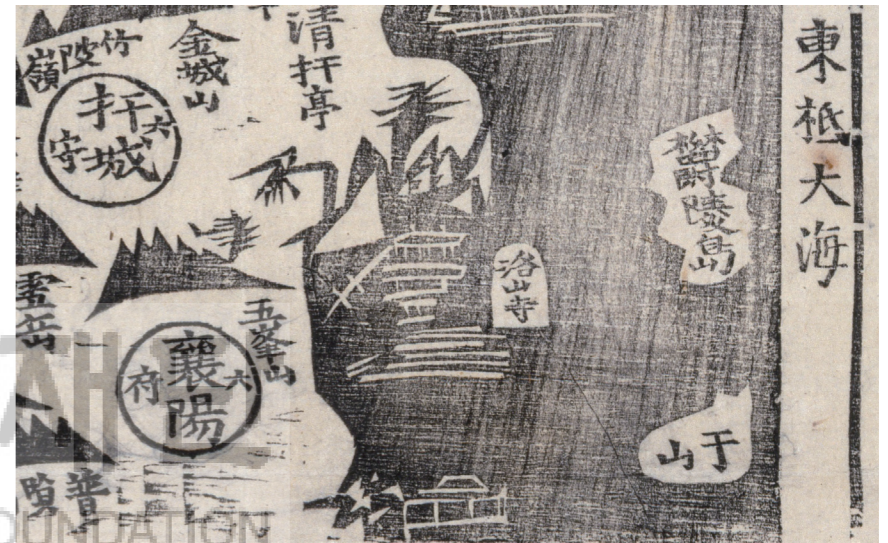 東祗大海
欝陵島
于山
洛山寺
清扞亭
金城山
竹陂嶺
扞城
六
守
五峯山
襄陽
六
府
雪岳
普